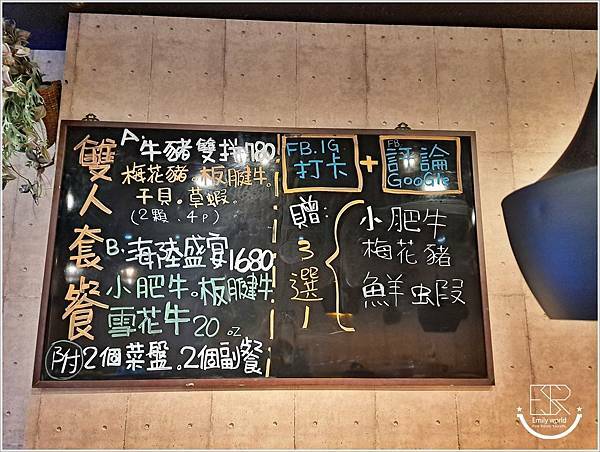 雙人套餐
A.牛豬雙拼780
梅花豬.板腱牛.
干貝.草蝦.
(2顆.4P)
B.海陸盛宴1680
小肥牛.板腱牛
雪花牛20oz
附2個菜盤.2個副餐
FB.IG
打卡
+
FB.
評論
GooGle
贈:3選1
小肥牛
梅花豬
鮮蝦
ESR
Emily world